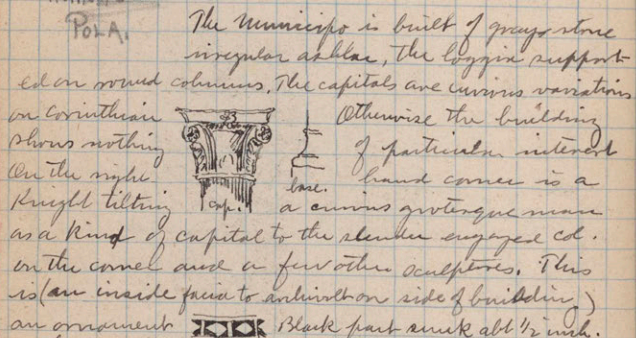 POLA.
The Municipo is built of grays stone
irregular ashlar, the loggia support-
ed on round columns, The capitals are curious variations
on corinthian Otherwise the building
shows nothing of particular interest
On the right base. hand corner is a
Knight tilting cap. a curious grotesque man
as a kind of capital to the slender engaged col.
on the corner and a few other sculptures. This
is (an inside facia to archivolt on side of building)
an ornament Black part sunk abt ½ inch.